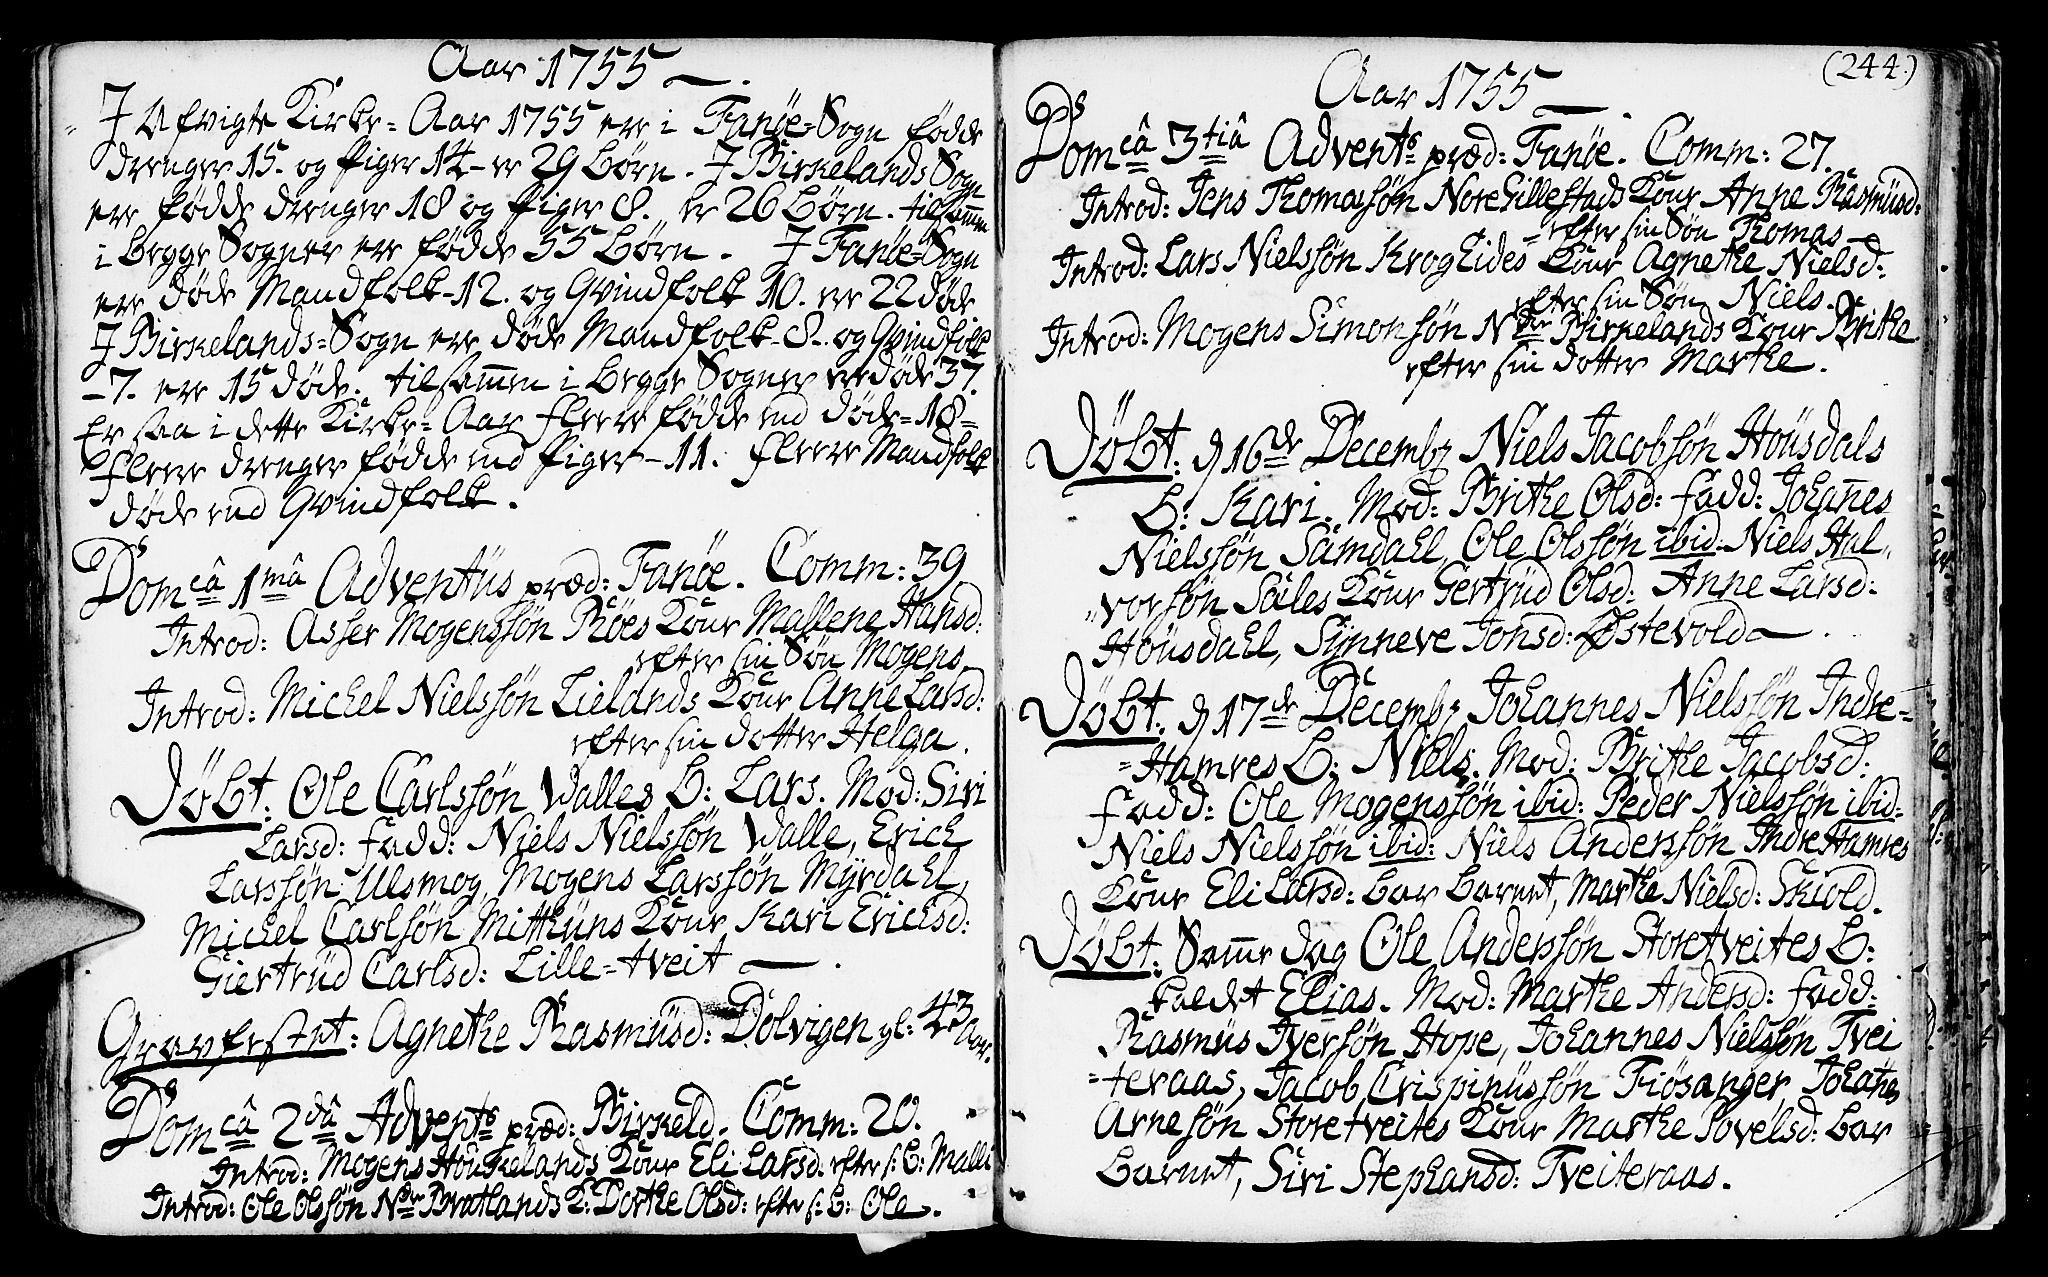 Aar 1755
J Afvigte Kirke-Aar 1755 ere i Fanöe-Sogn födde
drenger 15. og Piger 14 - er 29 Börn. J Birkelands Sogn
ere födde drenger 18 og Piger 8. er 26 Börn. tilsam̄en
i begge Sogner ere födde 55 Börn. J Fanöe-Sogn
ere döde Mandfolk-12. og Qvindfolk 10. ere 22 döde
J Birkelands-Sogn ere döde Mandfolk-8. og Qvindfolk
-7. ere 15 döde. tilsam̄en i begge Sogner ere döde 37.
Er saa i dette Kirke-Aar fleere födde end döde-18-
fleere drenger födde end Piger-11. fleere Mandfolk
döde end Qvindfolk.
Domcâ 1mâ Adventüs præd: Fanöe. Comm: 39
Introd: Asser Mogenssön Röes Kour Mallene Hansd:
efter sin Sön Mogens
Introd: Michel Nielssön Lielands Kour Anne Larsd:
efter sin dotter Helga.
Döbt: Ole Carlssön Walles B: Lars. Mod: Siri
Larsd: fadd: Niels Nielssön Walle, Erich
Larssön Ulsmog, Mogens Larssön Myrdahl,
Michel Carlsön Mitthüns Kour Kari Erichsd:
Giertrüd Carlsd: Lille-tveit
Gravfestet: Agnethe Rasmüsd: Dolvigen gl: 43 Aar.
Domcâ 2dâ Advents præd: Birkeld. Comm: 20.
Introd: Mogens Houkelands Kour Eli Larsd: efter s: B: Malli
Introd: Ole Olssön Ndr Bratlands K: Dorthe Olsd: efter s: B: Ole.
(244.)
Aar 1755
Domcâ 3tiâ Advents præd: Fanöe. Comm: 27.
Introd: Jens Thomassön Nore Lillestads Kour Anne Rasmüsd:
efter sin Sön Thomas
Introd: Lars Nielssön Krog Eides Kour Agnethe Nielsd:
efter sin Sön Niels.
Introd: Mogens Simonsön Ndr Birkelands Kour Brithe
efter sin dotter Marthe.
Döbt: d 16de Decembr Niels Jacobsön Housdals
B: Kari. Mod: Brithe Olsd: fadd: Johan̄es
Nielssön Samdahl, Ole Olssön ibid: Niels Hal„
„vorsön Säles Kour Gertrüd Olsd: Anne Larsd:
Housdahl, Synneve Jonsd: Östevold
Döbt: d 17de Decembr Johannes Nielssön Indre-
-Hamres B: Niels. Mod: Brithe Jacobsd:
fadd: Ole Mogenssön ibid: Peder Nielssön ibid:
Niels Nielssön ibid: Niels Anderssön Indre Hamres
Kour Eli Larsd: bar barnet, Marthe Nielsd: Skiold.
Döbt: Sam̄e dag Ole Anderssön Storetveites B:
kaldet Elias. Mod: Marthe Andersd: fadd:
Rasmüs Iversön Hope, Johannes Nielssön Tvei
-teraas, Jacob Crispinüssön Fiösanger, Johan̄es
Arnesön Storetveites Kour Marthe Povelsd: bar
barnet, Siri Stephansd: Tveiteraas.